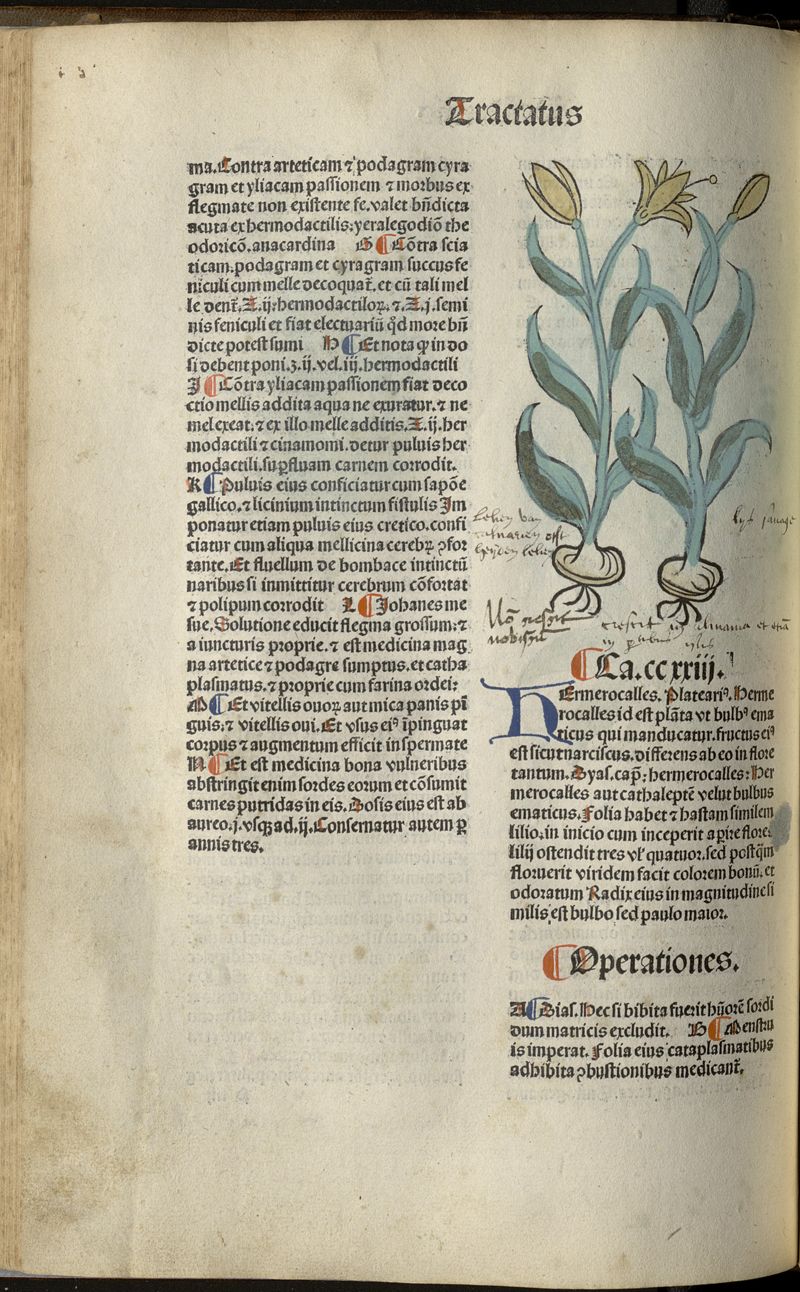 Tractatus
ma. Contra arteticam ⁊ podagram cyra
gram et yliacam passionem ⁊ morbus ex
flegmate non existente fe. valet bn̄dicta
acuta ex hermodactilis: yeralegodiō the
odoricō. anacardina G ¶ Cōtra scia
ticam. podagram et cyragram succus fe
niculi cum melle decoquat᷑. et cū tali mel
le dent᷑. Ʒ. ij. hermodactiloꝝ. ⁊. Ʒ. j. semi
nis feniculi et fiat electuariū qd̄ more bn̄
dicte potest sumi H ¶ Et nota ꝙ in do
si debent poni. ʒ. ij. vel. iij. hermodactili
J ¶ Cōtra yliacam passionem fiat deco
ctio mellis addita aqua ne exuratur. ⁊ ne
mel exeat: ⁊ ex illo melle additis. Ʒ. ij. her
modactili ⁊ cinamomi. detur puluis her
modactili. suꝑfluam carnem corrodit.
K ¶ Puluis eius conficiatur cum sapōe
gallico. ⁊ licinium intinctum fistulis Im
ponatur etiam puluis eius cretico. confi
ciatur cum aliqua mellicina cerebꝝ ꝯfor
tante. Et fluellum de bombace intinctū
naribus si inmittitur cerebrum cōfortat
⁊ polipum corrodit L ¶ Johanes me
sue. Solutione educit flegma grossum: ⁊
a iuncturis proprie. ⁊ est medicina mag
na artetice ⁊ podagre sumptus. et catha
plasmatus. ⁊ proprie cum farina ordei:
M ¶ Et vitellis ouoꝝ aut mica panis pī
guis: ⁊ vitellis oui. Et vsus eiꝰ īpinguat
corpus ⁊ augmentum efficit in spermate
N ¶ Et est medicina bona vulneribus
abstringit enim sordes eorum et cōsumit
carnes putridas in eis. Dosis eius est ab
aureo. j. vsqꝫ ad. ij. Conseruatur autem ꝑ
annis tres.
Ca. cc xxiij.
HErmerocalles. Plateariꝰ. Herme
rocalles id est plāta vt bulbꝰ ema
ticus qui manducatur. fructus eiꝰ
est sicut narciscus. differens ab eo in flore
tantum. Dyas. cap̄: hermerocalles: Her
merocalles aut cathaleptē velut bulbus
ematicus. Folia habet ⁊ hastam similem
lilio: in inicio cum inceperit aꝑire flore.
lilij ostendit tres vl' quatuor. sed postq̄m
floruerit viridem facit colorem bonū. et
odoratum Radix eius in magnitudine si
milis est bulbo sed paulo maior.
¶ Operationes.
A ¶ Dias. Hec si bibita fuerit hūorē sordi
dum matricis excludit. B ¶ Menstru
is imperat. Folia eius cataplasmatibus
adhibita ꝯbustionibus medicant᷑.